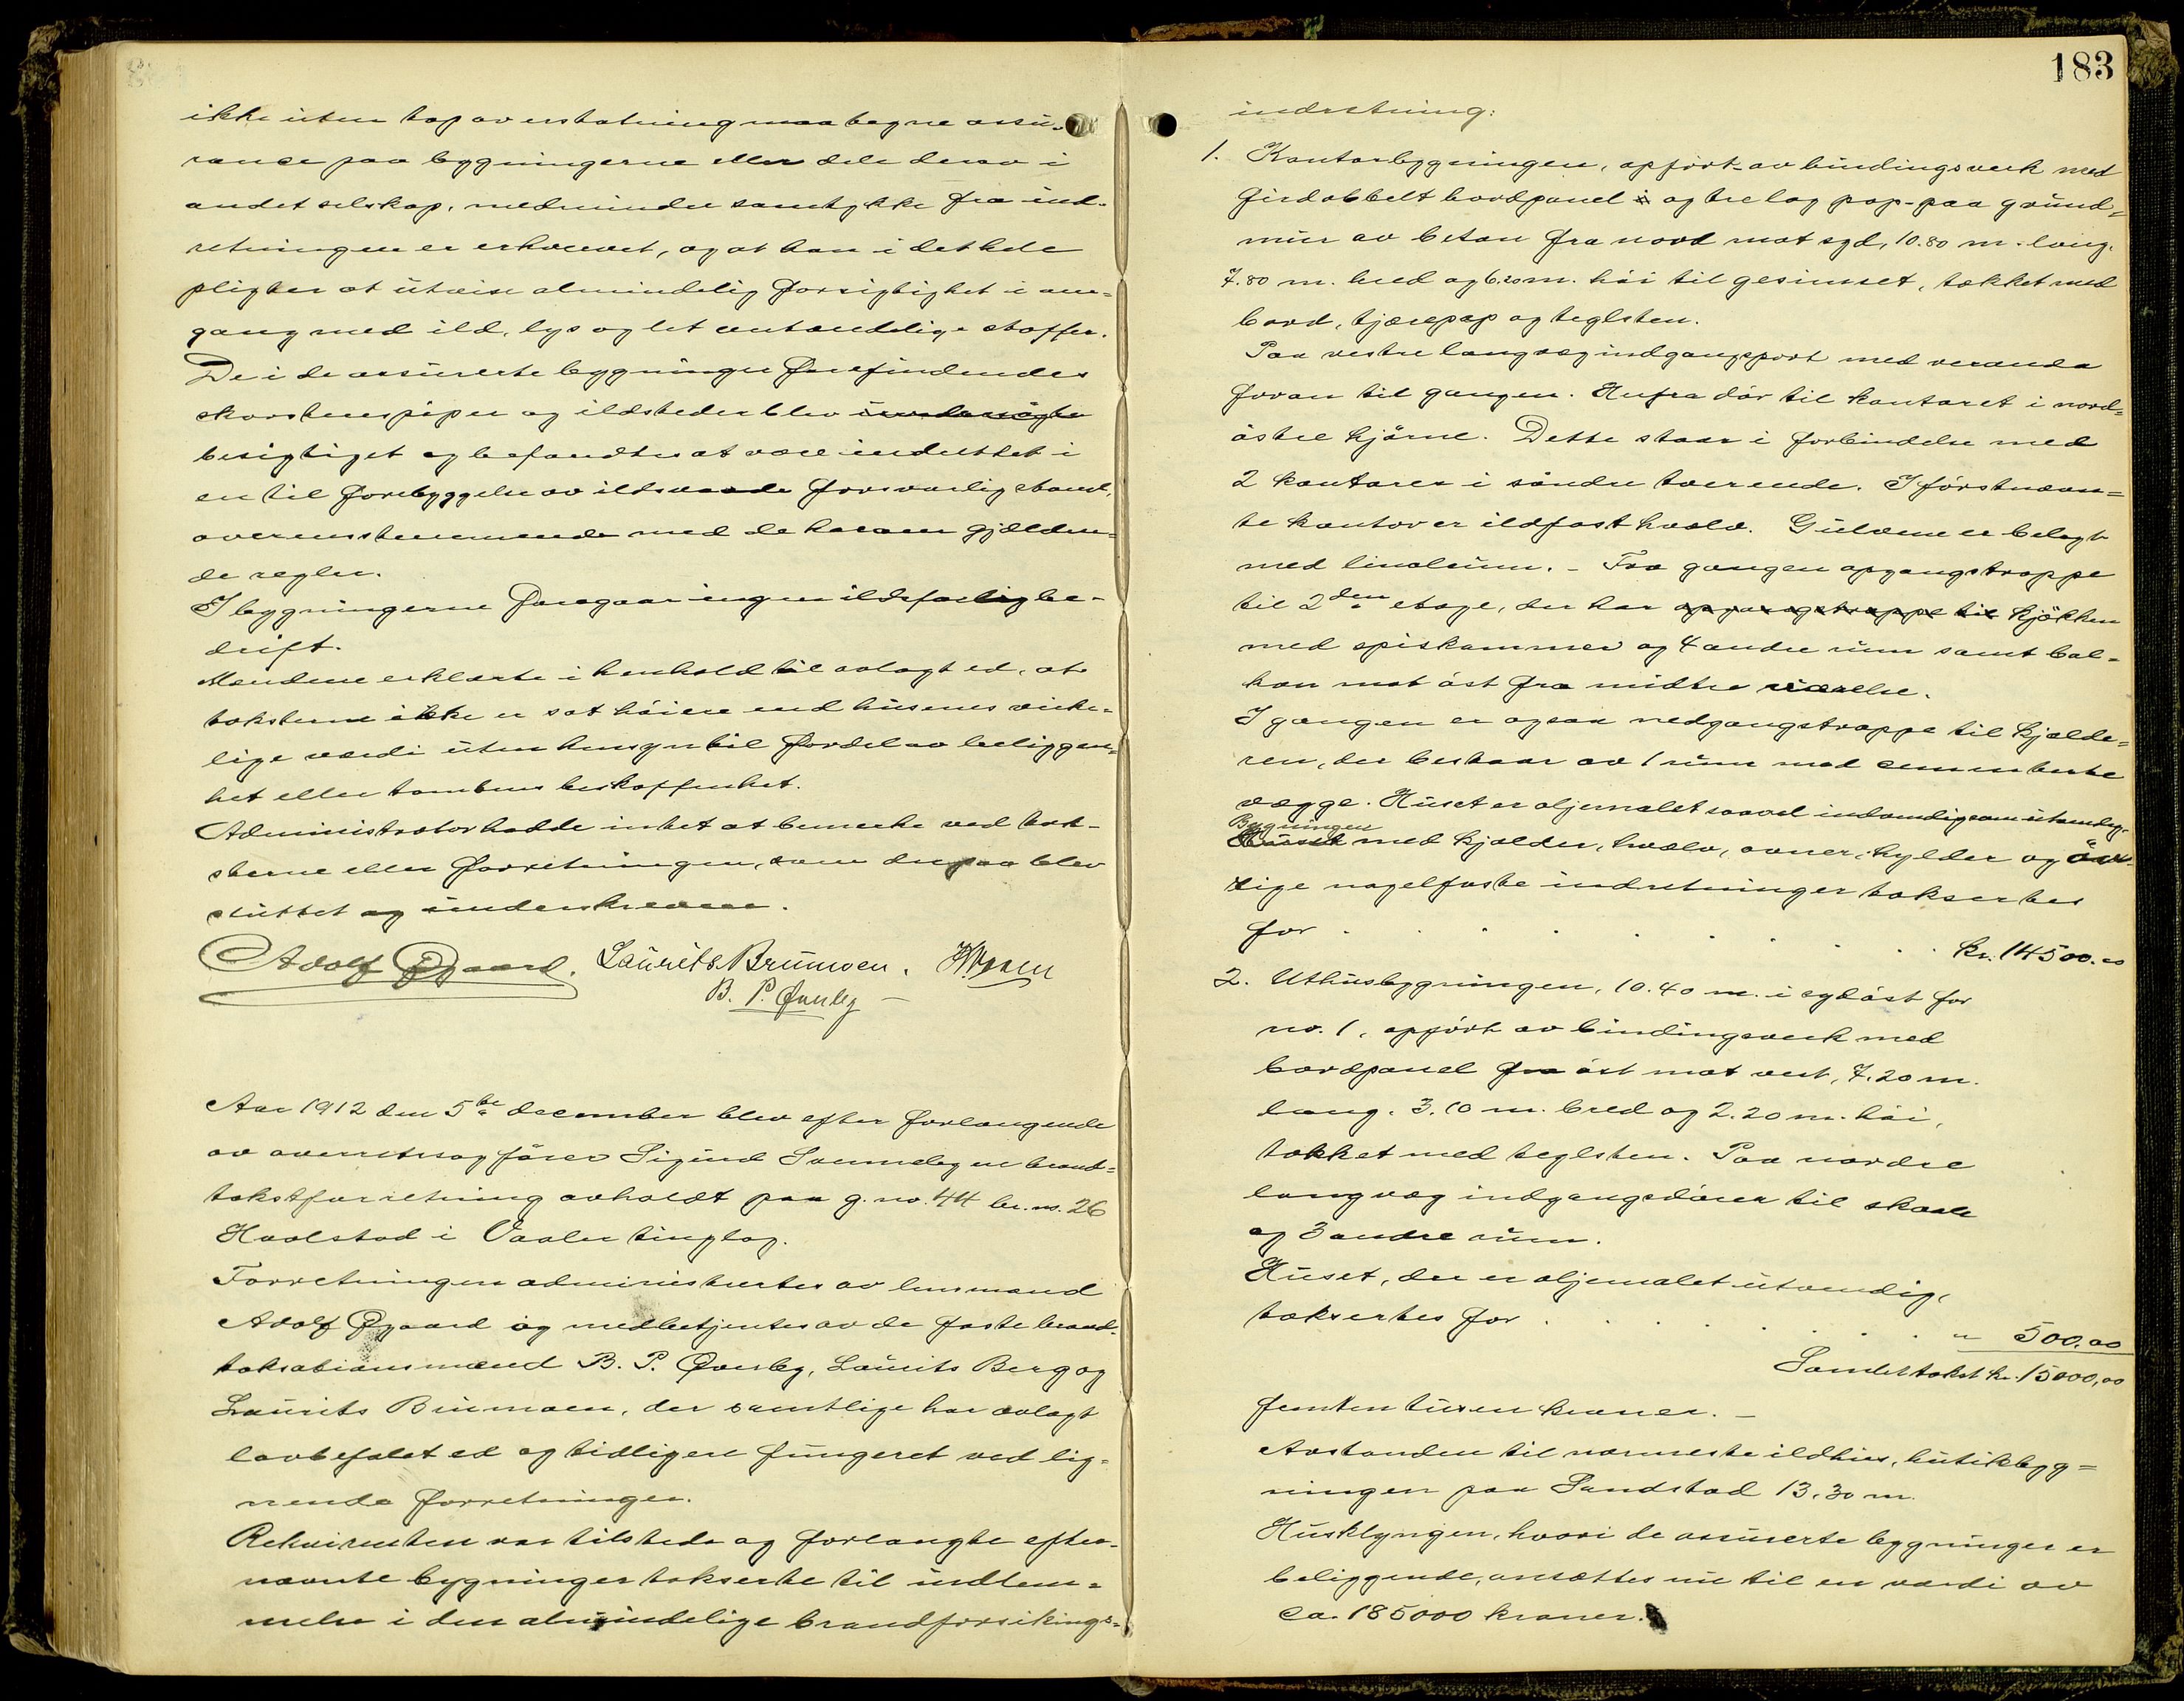 ikke uten tap av erstatning maa tegne assu-
rance paa bygningerne eller dele derav i
andet selskap, medmindre samtykke fra ind-
retningen er erhvervet, og at han i det hele
pligter at utvise almindelig forsigtighet i om-
gang med ild, lys og let antændelige stoffer.
De i de assurerte bygninger forefindendes
skorstenspiper og ildsteder blev undersøgte
besigtiget og befandtes at være indrettet i
en til forebyggelse av ildsvaade forsvarlig stand,
overensstemmende med de herom gjælden-
de regler.
I bygningerne foregaar ingen ildsfarlig be-
drift.
Mændene erklærte i henhold til avlagt ed, at
taksterne ikke er sat høiere end husenes virke-
lige værdi uten hensyn til fordel av beliggen-
het eller tomtens beskaffenhet.
Administrator hadde intet at bemerke ved tak-
sterne eller forretningen, som derpaa blev
sluttet og underskreven.
Adolf Øgaard. Laurits Brumoen.
B. P. Øverby
Aar 1912 den 5te december blev efter forlangende
av overretssagfører Sigurd branD-
takstforretning avholdt paa g. no. 44 br. no. 26
Haalstad i Vaaler tinglag.
Forretningen administrertes av lensmand
Adolf Øgaard og medbetjentes av de faste brand-
taksationsmænd B. P. Øverby, Laurits Berg og
Laurits Brumoen, der samtlige har avlagt
lovbefalet ed og tidligere fungeret ved lig-
nende forretninger.
Rekvirenten var tilstede og forlangte efter-
nævnte bygninger takserte til indlem-
melse i den almindelige brandforsikrings-
183
indretning:
1. Kontorbygningen, opført av bindingsverk med
firdobbelt bordpanel og tre lag pap - paa grund-
mur av beton fra nord mot syd, 10.80 m. lang,
7.80 m. bred og 6.20 m. høi til gesimset, tækket med
bord, tjærepap og teglsten.
Paa vestre langvæg indgangsport med veranda
foran til gangen. Herfra dør til kontoret i nord-
østre hjørne. Dette staar i forbindelse med
2 kontorer i søndre tverende. I førstnævn-
te kontor er ildfast hvælv. Gulvene er belagt
med linoleum. - Fra gangen opgangstrappe
til 2den etage, der har opgangstrappe til kjøkken
med spiskammer og 4 andre rum samt bal-
kon mot øst fra midtre værelse.
I gangen er ogsaa nedgangstrappe til kjælde-
ren, der bestaar av 1 rum med cementerte
vægge. Huset er oljemalet saavel indvendig som utvendig.
Bygningen
Huset med kjælder, hvælv, ovner, hylder og øv-
rige nagelfaste indretninger taksertes
for . . . . . . . . kr. 14500.00
2. Uthusbygningen, 10.40 m. i sydøst for
no. 1, opført av bindingsverk med
bordpanel fra øst mot vest, 7.20 m.
lang, 3.10 m. bred og 2.20 m. høi,
tækket med teglsten. Paa nordre
langvæg indgangsdører til skaale
og 3 andre rum.
Huset, der er oljemalet utvendig,
taksertes for . . . . . . . " 500.00
Samlet takst kr. 15000,00
femten tusen kroner. -
Avstanden til nærmeste ildhus, butikbyg-
ningen paa Sandstad 13.30 m.
Husklyngen, hvori de assurerte bygninger er
beliggende, ansættes nu til en værdi av
ca. 185000 kroner.